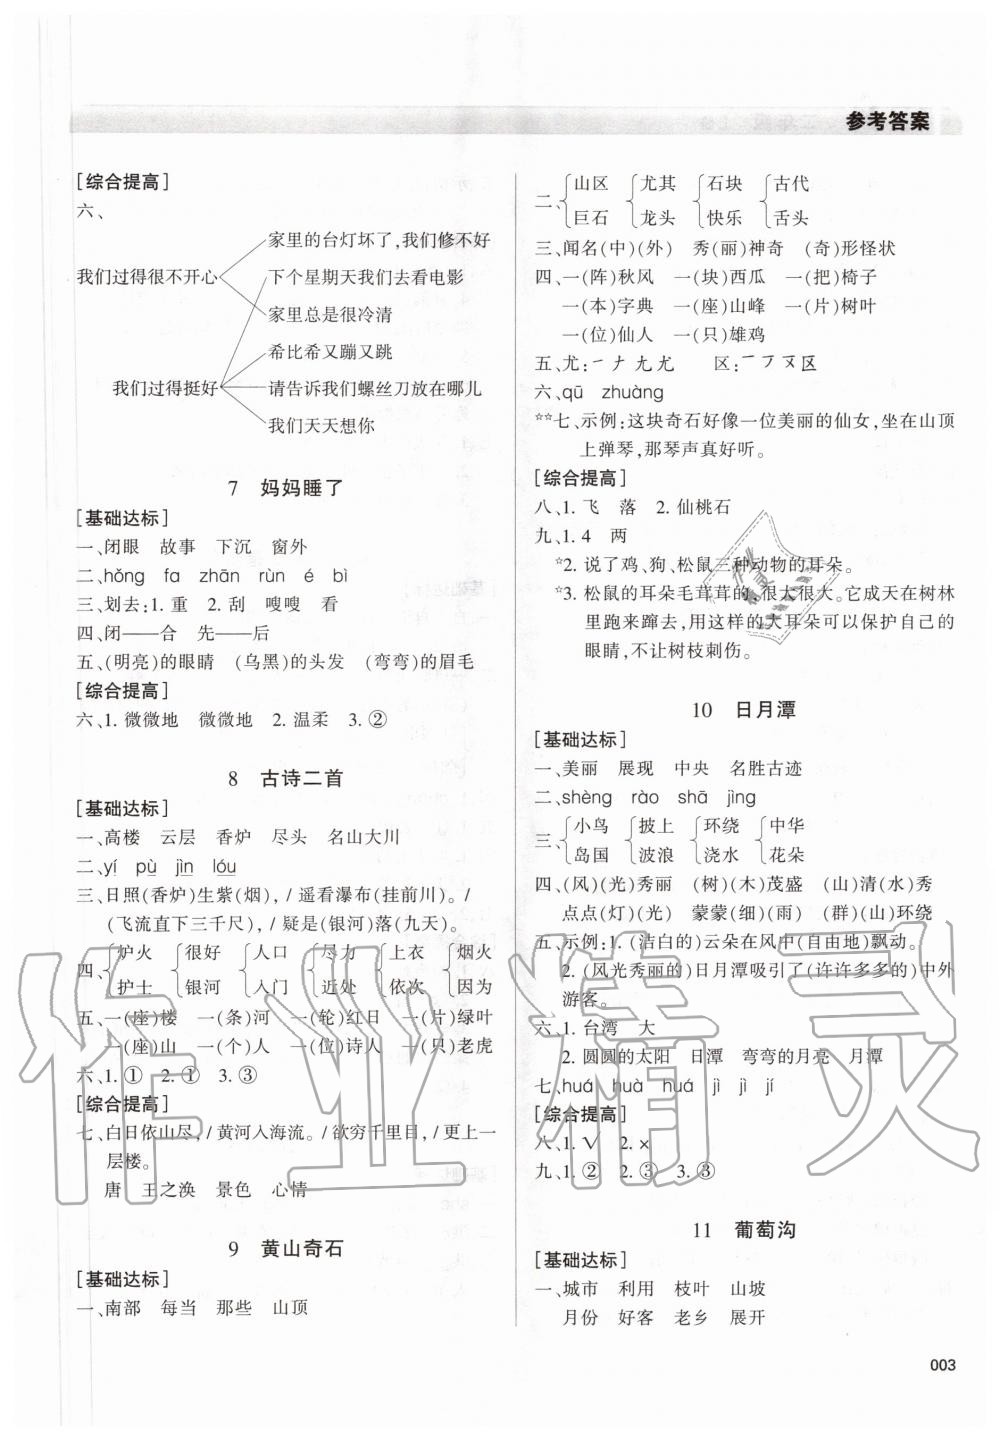 参考答案
[综合提高]
六、
家里的台灯坏了,我们修不好
我们过得很不开心
下个星期天我们去看电影
家里总是很冷清
希比希又蹦又跳
我们过得挺好
请告诉我们螺丝刀放在哪儿
我们天天想你
7 妈妈睡了
[基础达标]
一、闭眼 故事 下沉 窗外
二、hǒng fa zhān rùn é bì
三、划去:1. 重 2. 刮 嗖嗖 看
四、闭——合 先——后
五、(明亮)的眼睛 (乌黑)的头发 (弯弯)的眉毛
[综合提高]
六、1. 微微地 微微地 2. 温柔 3. ②
8 古诗二首
[基础达标]
一、高楼 云层 香炉 尽头 名山大川
二、yí pù jìn lóu
三、日照(香炉)生紫(烟),/遥看瀑布(挂前川)。/
(飞流直下三千尺),/疑是(银河)落(九天)。
四、炉火 很好 人口 尽力 上衣 烟火
护士 银河 入门 近处 依次 因为
五、一(座)楼 一(条)河 一(轮)红日 一(片)绿叶
一(座)山 一(个)人 一(位)诗人 一(只)老虎
六、1. ① 2. ① 3. ③
[综合提高]
七、白日依山尽,/黄河入海流。/欲穷千里目,/更上一
层楼。
唐 王之涣 景色 心情
9 黄山奇石
[基础达标]
一、南部 每当 那些 山顶
二、山区 尤其 石块 古代
巨石 龙头 快乐 舌头
三、闻名(中)(外) 秀(丽)神奇 (奇)形怪状
四、一(阵)秋风 一(块)西瓜 一(把)椅子
一(本)字典 一(座)山峰 一(片)树叶
一(位)仙人 一(只)雄鸡
五、尤:一ナ九尤 区:一フヌ区
六、qū zhuàng
☆☆七、示例:这块奇石好像一位美丽的仙女,坐在山顶
上弹琴,那琴声真好听。
[综合提高]
八、1. 飞 落 2. 仙桃石
九、1. 4 两
☆2. 说了鸡、狗、松鼠三种动物的耳朵。
☆3. 松鼠的耳朵毛茸茸的,很大很大。它成天在树林
里跑来蹿去,用这样的大耳朵可以保护自己的
眼睛,不让树枝刺伤。
10 日月潭
[基础达标]
一、美丽 展现 中央 名胜古迹
二、shèng rào shā jìng
三、小鸟 披上 环绕 中华
岛国 波浪 浇水 花朵
四、(风)(光)秀丽 (树)(木)茂盛 (山)清(水)秀
点点(灯)(光) 蒙蒙(细)(雨) (群)(山)环绕
五、示例:1. (洁白的)云朵在风中(自由地)飘动。
2. (风光秀丽的)日月潭吸引了(许许多多的)中外
游客。
六、1. 台湾 大
2. 圆圆的太阳 日潭 弯弯的月亮 月潭
七、huá huà huá jì jì jí
[综合提高]
八、1. √ 2. ×
九、1. ② 2. ③ 3. ③
11 葡萄沟
[基础达标]
一、城市 利用 枝叶 山坡
月份 好客 老乡 展开
003
作业精灵